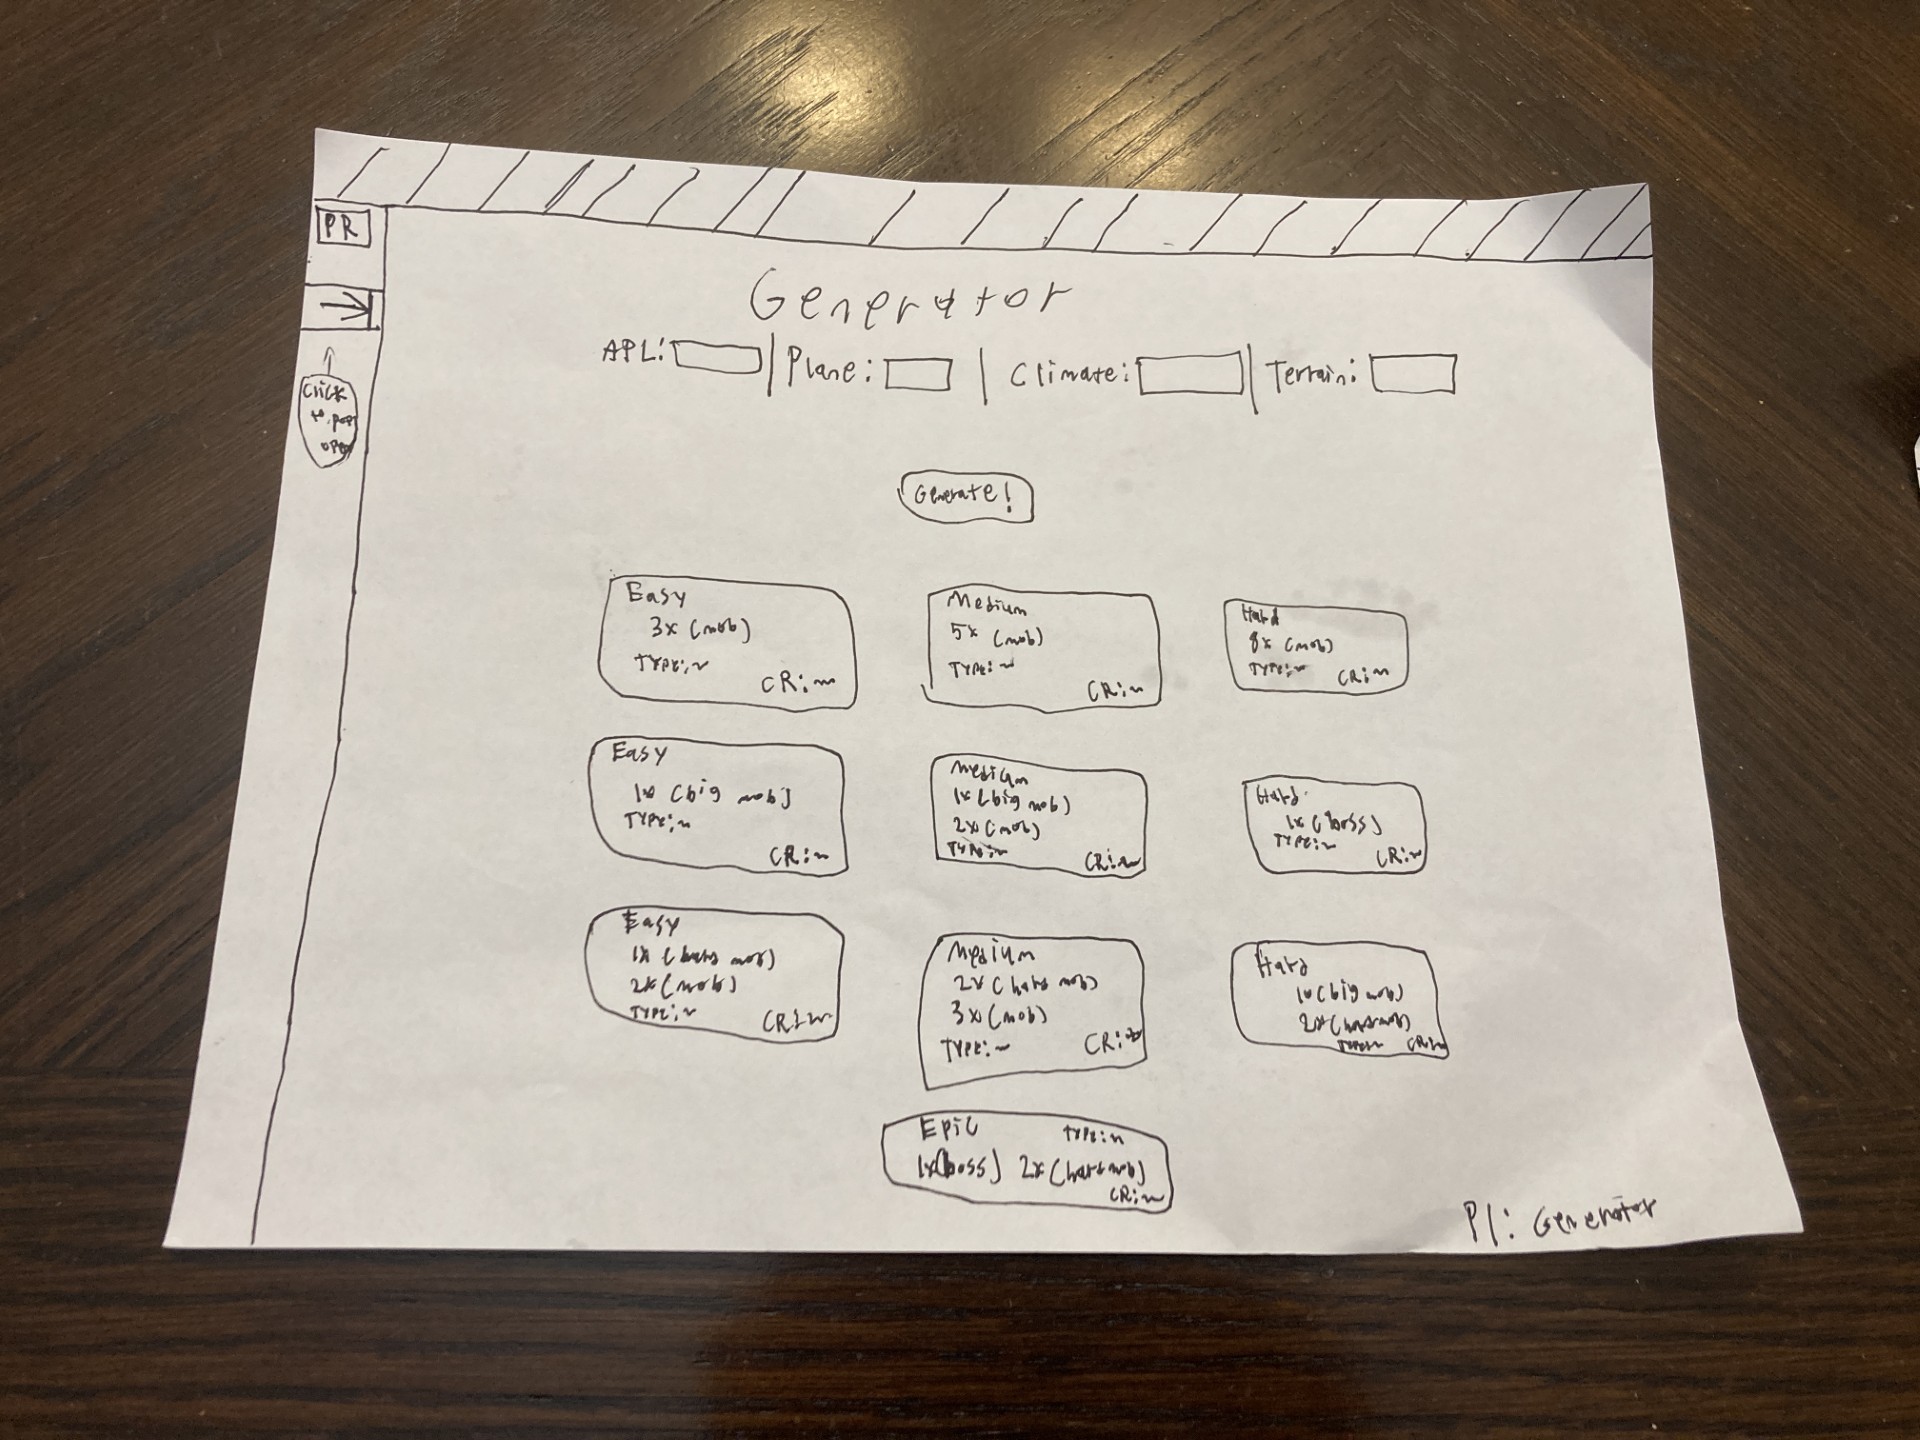 PR
click
to pop
open
Generator
APL: Plane: Climate: Terrain:
Generate!
Easy
3x (mob)
TYPE:~
CR:~
Medium
5x (mob)
TYPE:~
CR:~
Hard
8x (mob)
TYPE:~
CR:~
Easy
1x (big mob)
TYPE:~
CR:~
Medium
1x (big mob)
2x (mob)
TYPE:~
CR:~
Hard
1x (boss)
TYPE:~
CR:~
Easy
1x (hard mob)
2x (mob)
TYPE:~
CR:~
Medium
2x (hard mob)
3x (mob)
TYPE:~
CR:~
Hard
1x (big mob)
2x (hard mob)
TYPE:~ CR:~
Epic TYPE:~
1x (boss) 2x (hard mob)
CR:~
P1: Generator